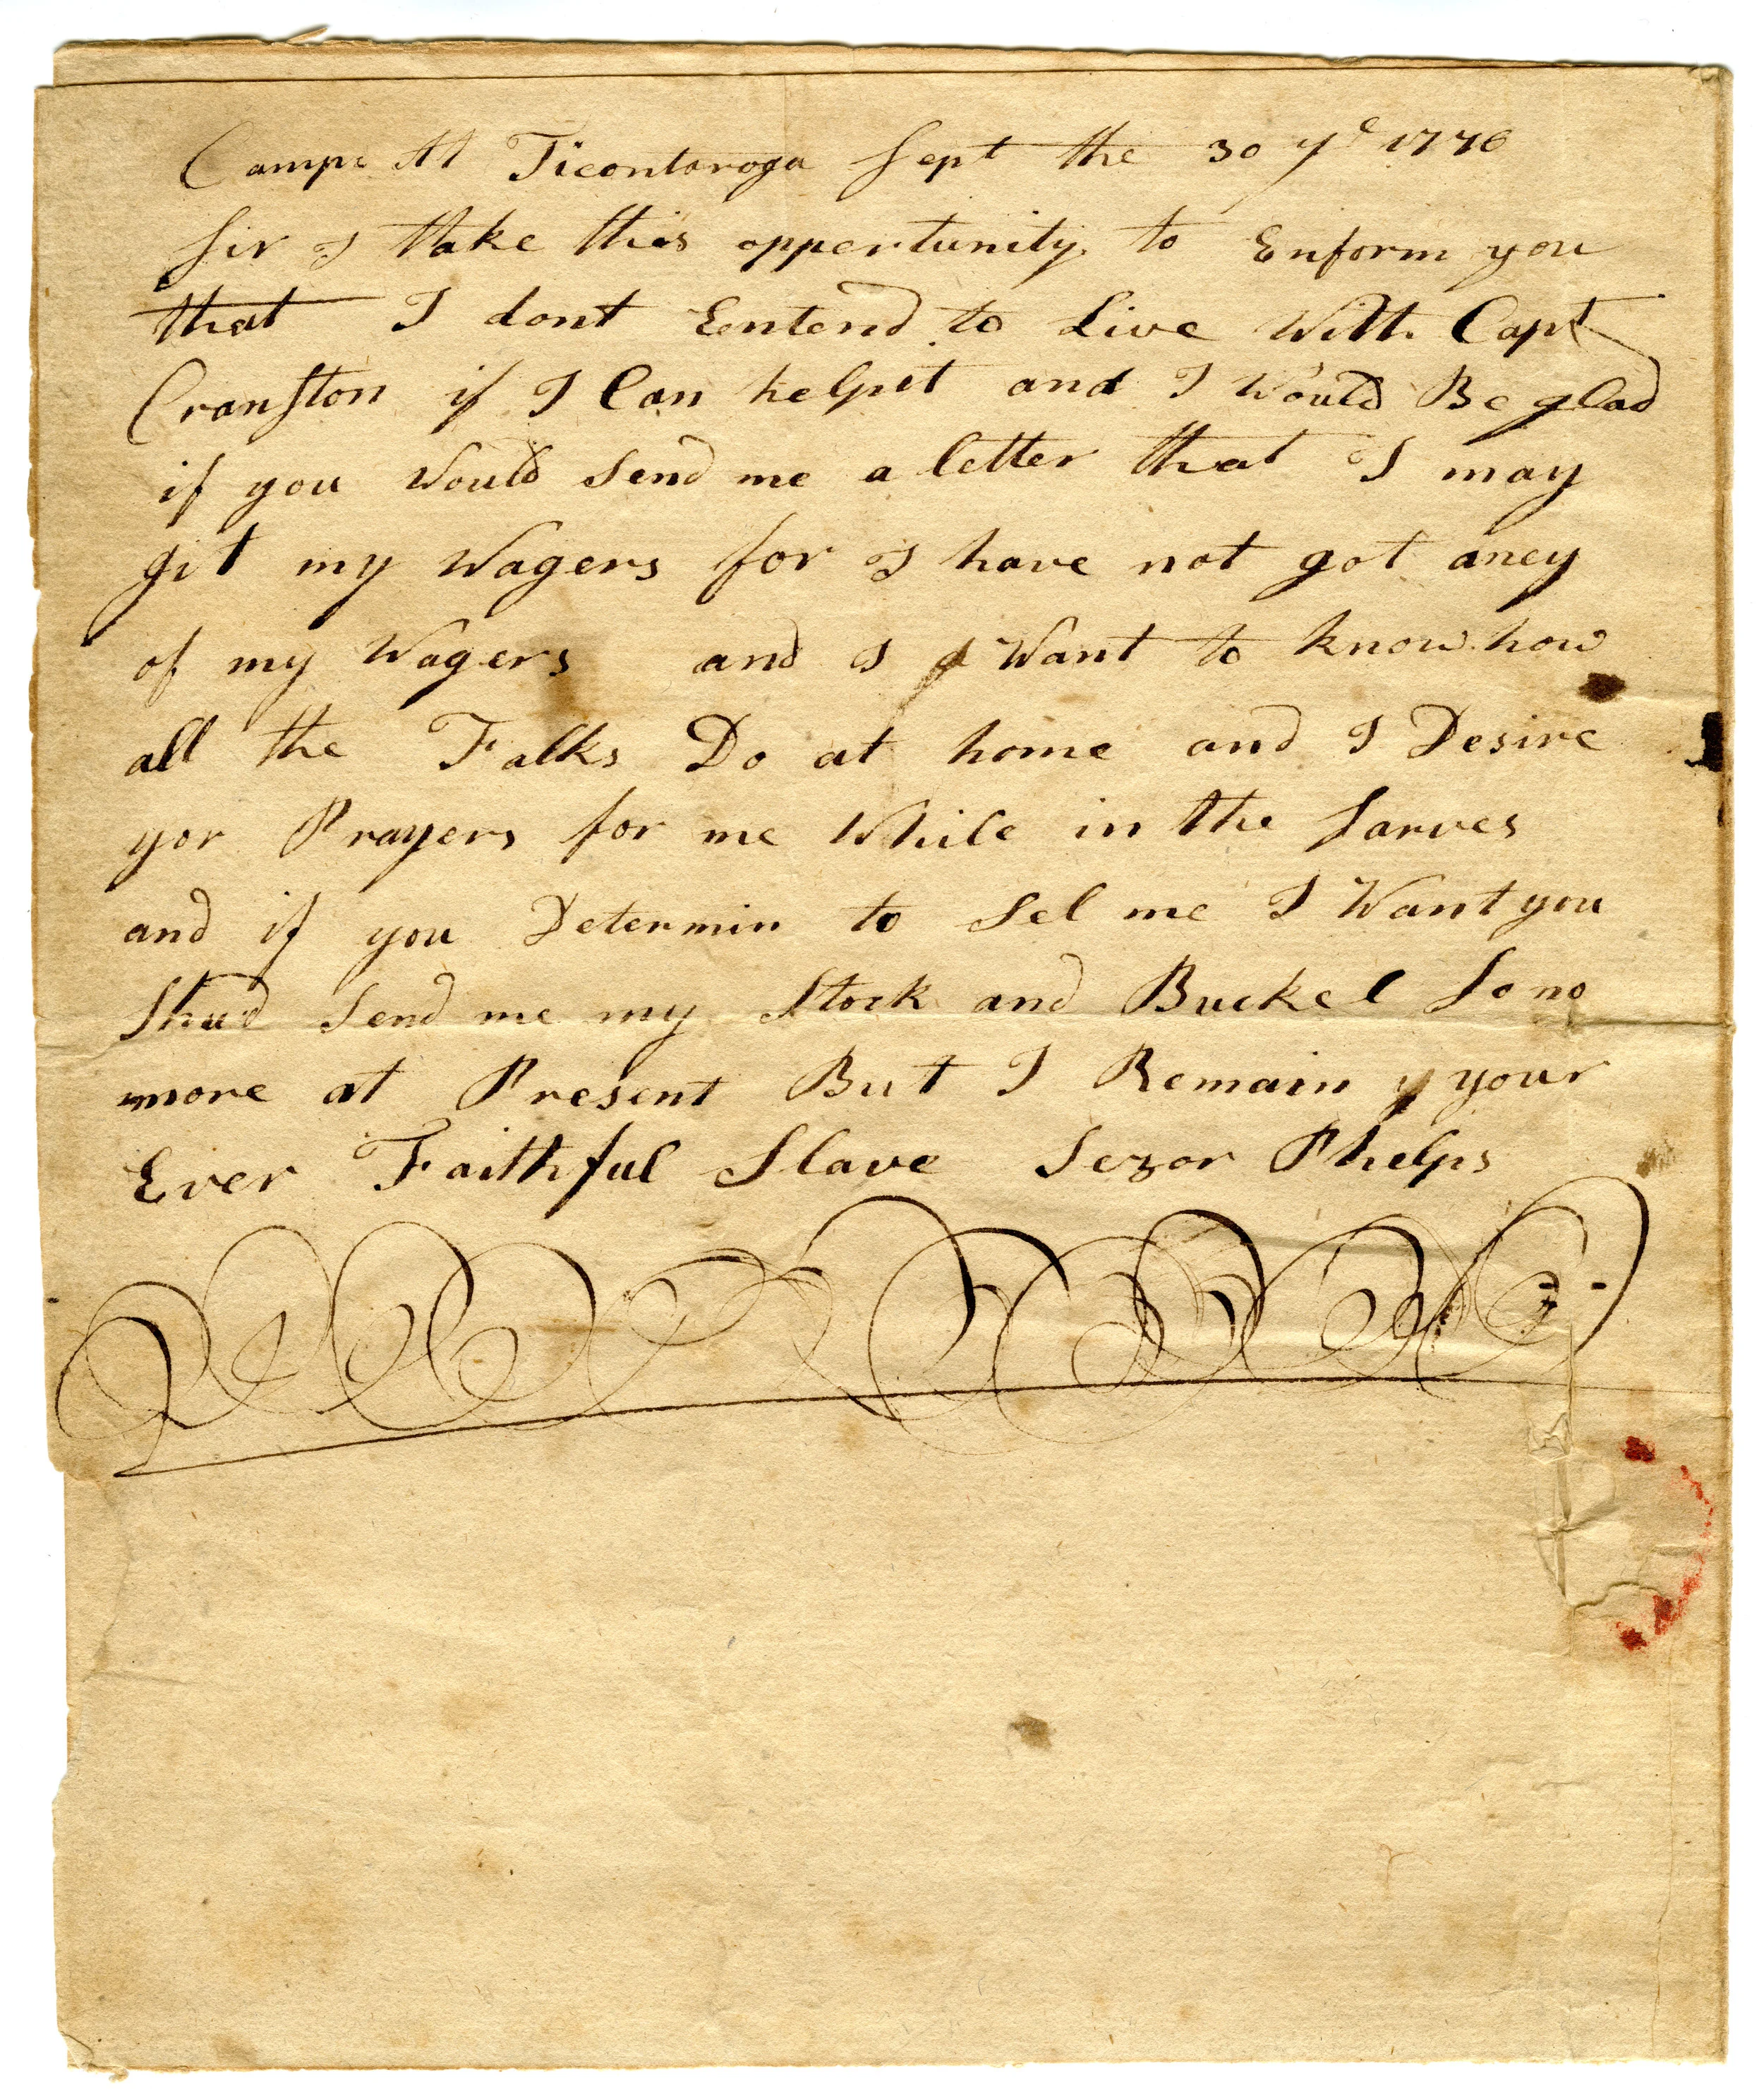 Campe At Ticontoroga Sept the 30 ye 1776
Sir I take this oppertunity to Enform you
that I dont Entend to Live With Capt
Cranston if I Can helpit and I Would Be glad
if you Would Send me a letter that I may
git my Wagers for I have not got aney
of my Wagers and I Want to know how
all the Falks Do at home and I Desire
yor Prayers for me While in the Sarves
and if you Determin to Sel me I Want you
Shud Send me my Stock and Buckel So no
more at Present But I Remain your
Ever Faithful Slave Sezor Phelps